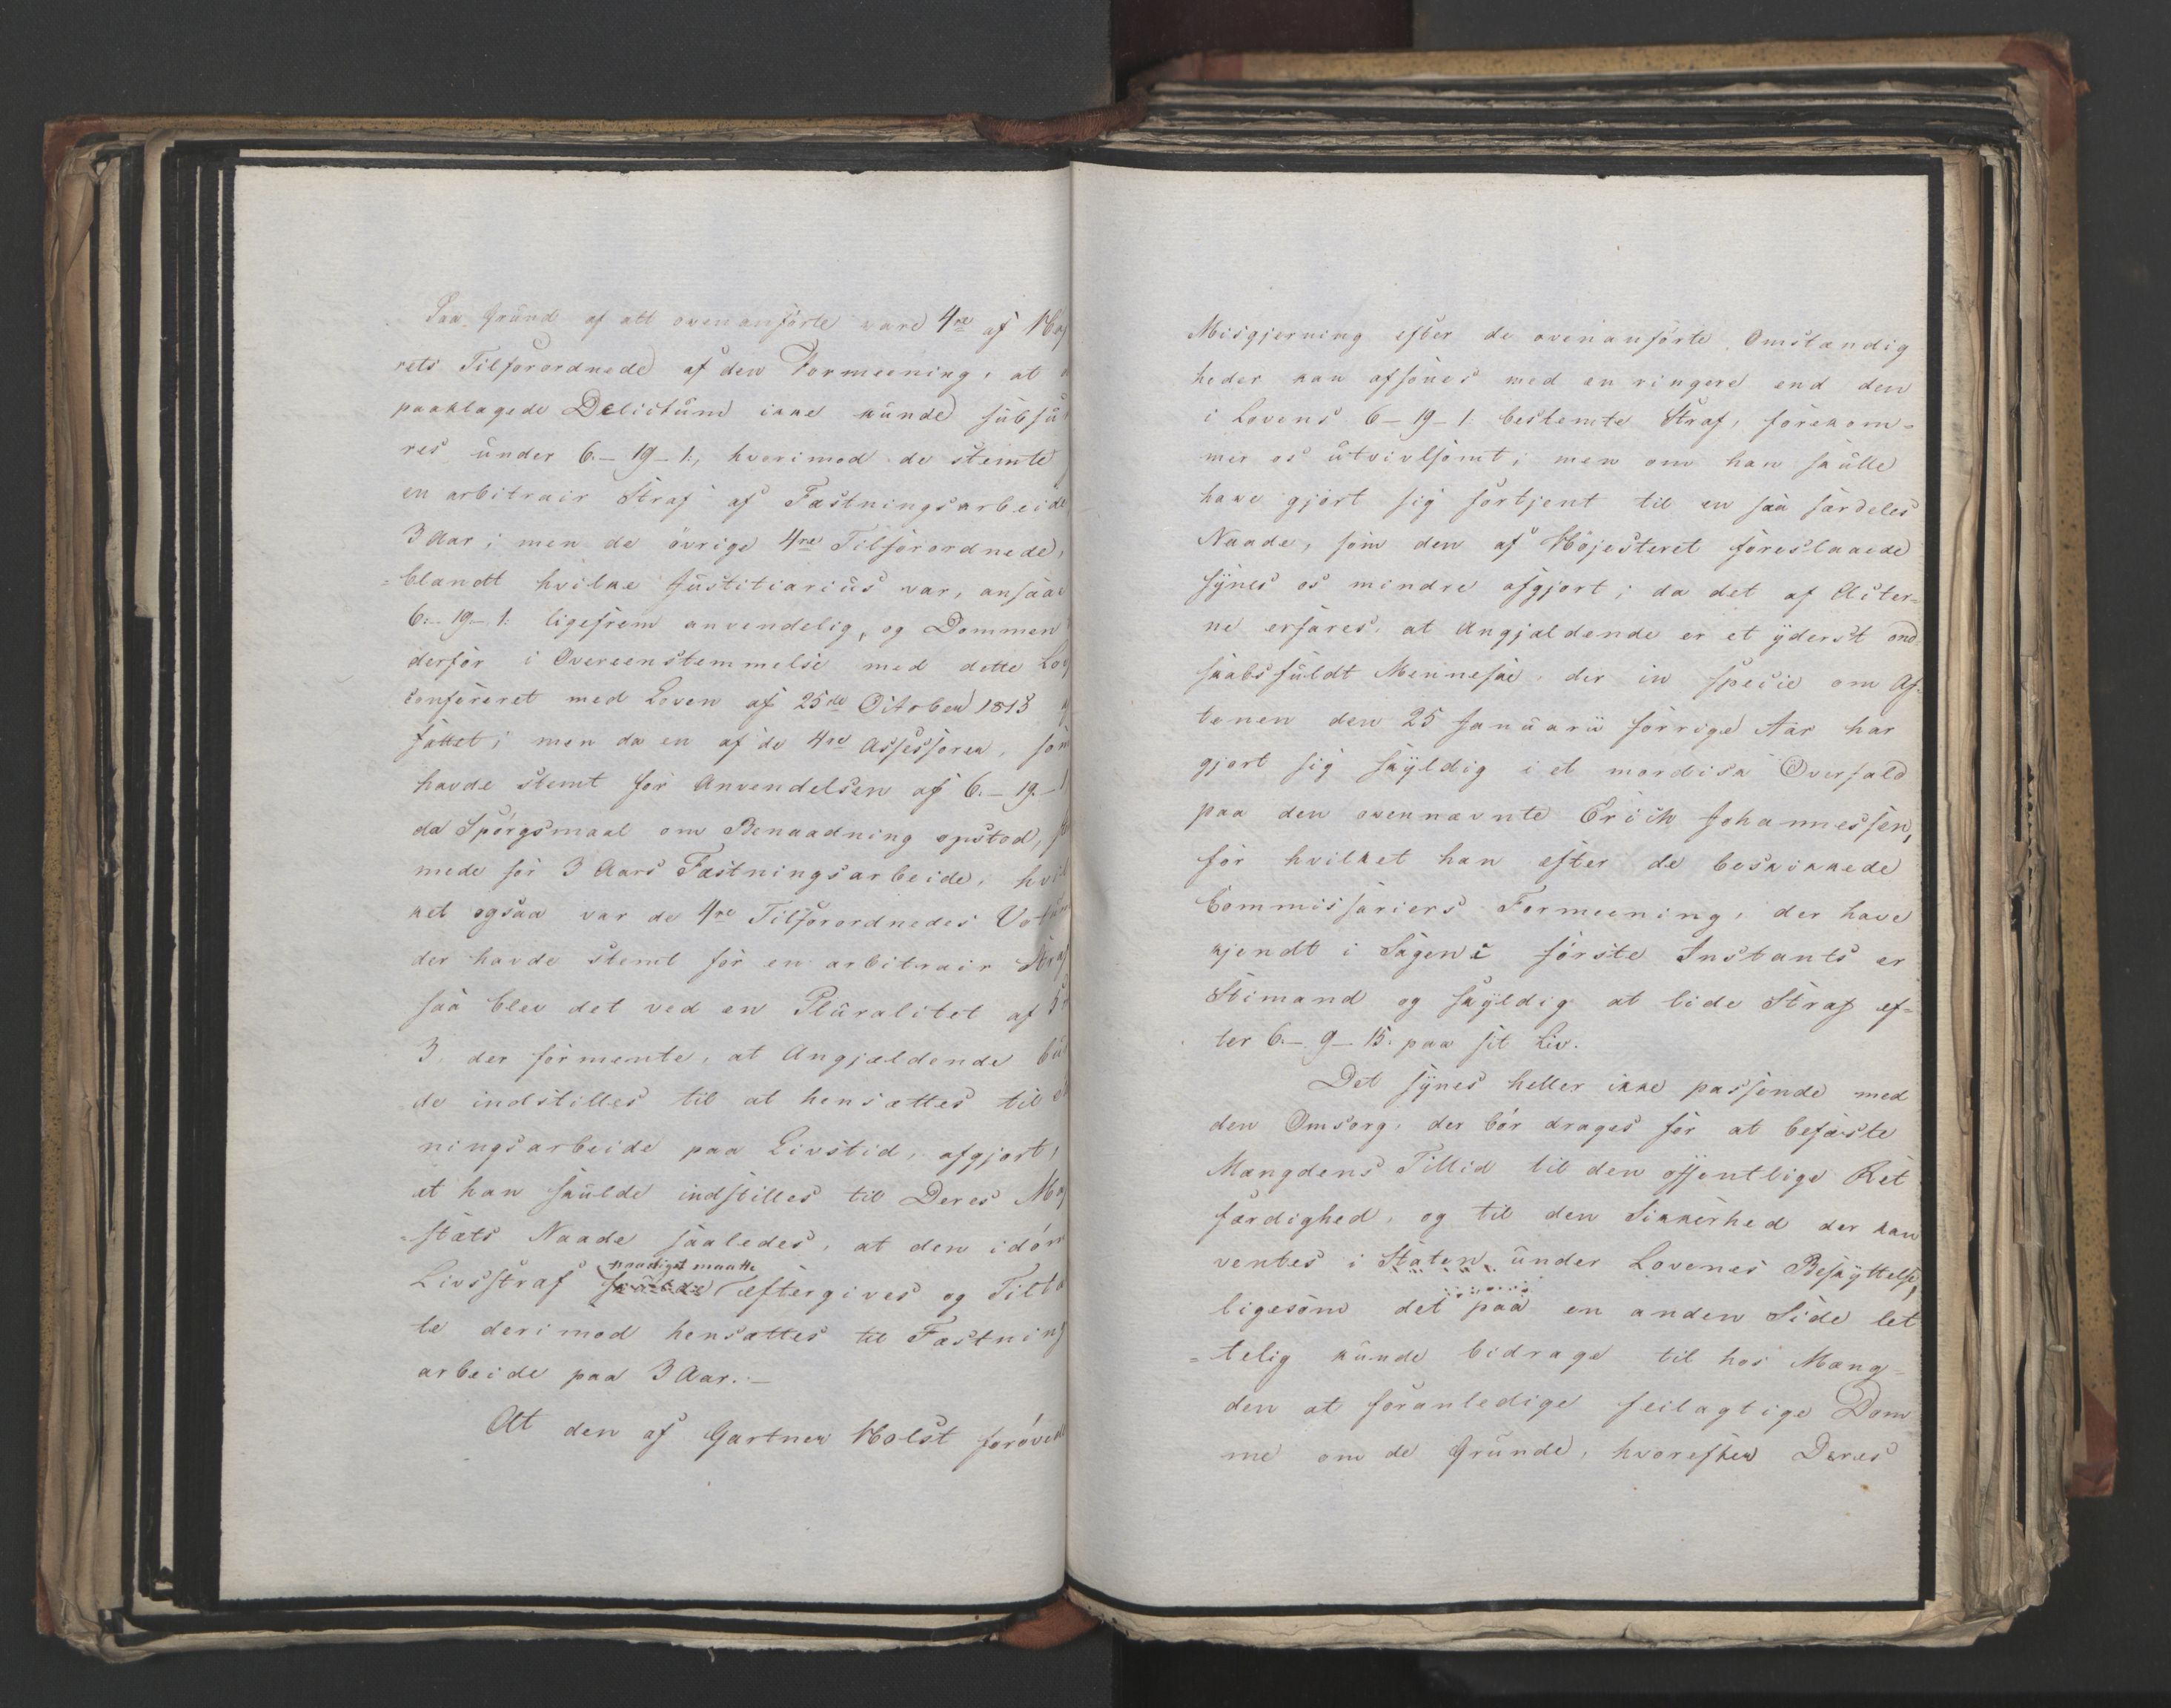 Paa Grund af alt ovenanførte vare 4re af Høj
rets Tilforordnede af den Formeening, at
paaklagede Delictum ikke kunde subsu
res under 6.-19-1., hvorimod de stemte
en arbitrair Straf af Fæstningsarbeide
3 Aar; men de øvrige 4re Tilforordnede,
=blandt hvilke Justitiarius var, ansaae
6.-19-1. ligefrem anvendelig, og Dommen
derfor i Overeensstemmelse med dette Lov
confereret med Loven af 25de October 1815
fattet; men da en af de 4re Assessorer, som
havde stemt for Anvendelsen af 6.-19.-1
da Spørgsmaal om Benaadning opstod,
mede for 3 Aars Fæstningsarbeide, hvil
ket ogsaa var de 4re Tilforordnedes Votum
der havde stemt for en arbitrair Straf
saa blev det ved en Pluralitet af 5
3, der formente, at Angjældende bur
de indstilles til at hensættes til
ningsarbeide paa Livstid, afgjort,
at han skulde indstilles til Deres Maj
=stæts Naade saaledes, at den idøm
naadigst maatte
Livsstraf skulde eftergives og Tilta
te derimod hensættes til Fæstning
arbeide paa 3 Aar.-
At den af Gartner Holst forøvede
Misgjerning efter de ovenanførte Omstændig
heder kan afsones med en ringere end den
i Lovens 6-19-1. bestemte Straf, forekom=
mer os utvivlsomt; men om han skulle
have gjort sig fortjent til en saa særdeles
Naade, som den af Højesteret foreslaaede
synes os mindre afgjort; da det af Acter=
ne erfares, at Angjældende er et yderst ond
skabsfuldt Menneske, der in specie om Af-
tenen den 25 Januarii forrige Aar har
gjort sig skyldig i et mordisk Overfald
paa den ovennævnte Erich Johannessen,
for hvilket han efter de beskikkede
Commissariers Formeening, der have
kjendt i Sagen i første Instants er
Stimand og skyldig at lide Straf ef=
ter 6.-9-15. paa sit Liv.
Det synes heller ikke passende med
den Omsorg, der bør drages for at befæste
Mængdens Tillid til den offentlige Ret
færdighed, og til den Sikkerhed der kan
ventes i Staten under Lovenes Beskyttelse,
ligesom det paa en anden Side let
=telig kunde bidrage til hos Mæng=
den at foranledige feilagtige Dom
me om de Grunde, hvorefter Deres